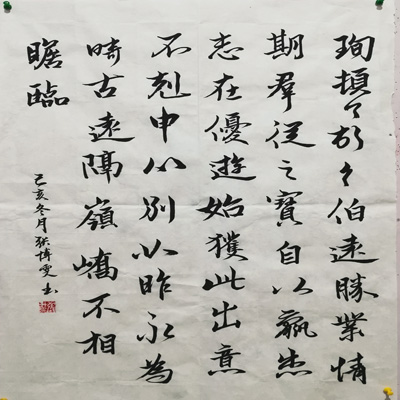 珣頓々首々伯遠勝業情
期羣從之寶自以羸患
志在優遊始獲此出意
不剋申分別如昨永為
疇古遠隔嶺嶠不相
瞻臨
己亥冬月張博雯书